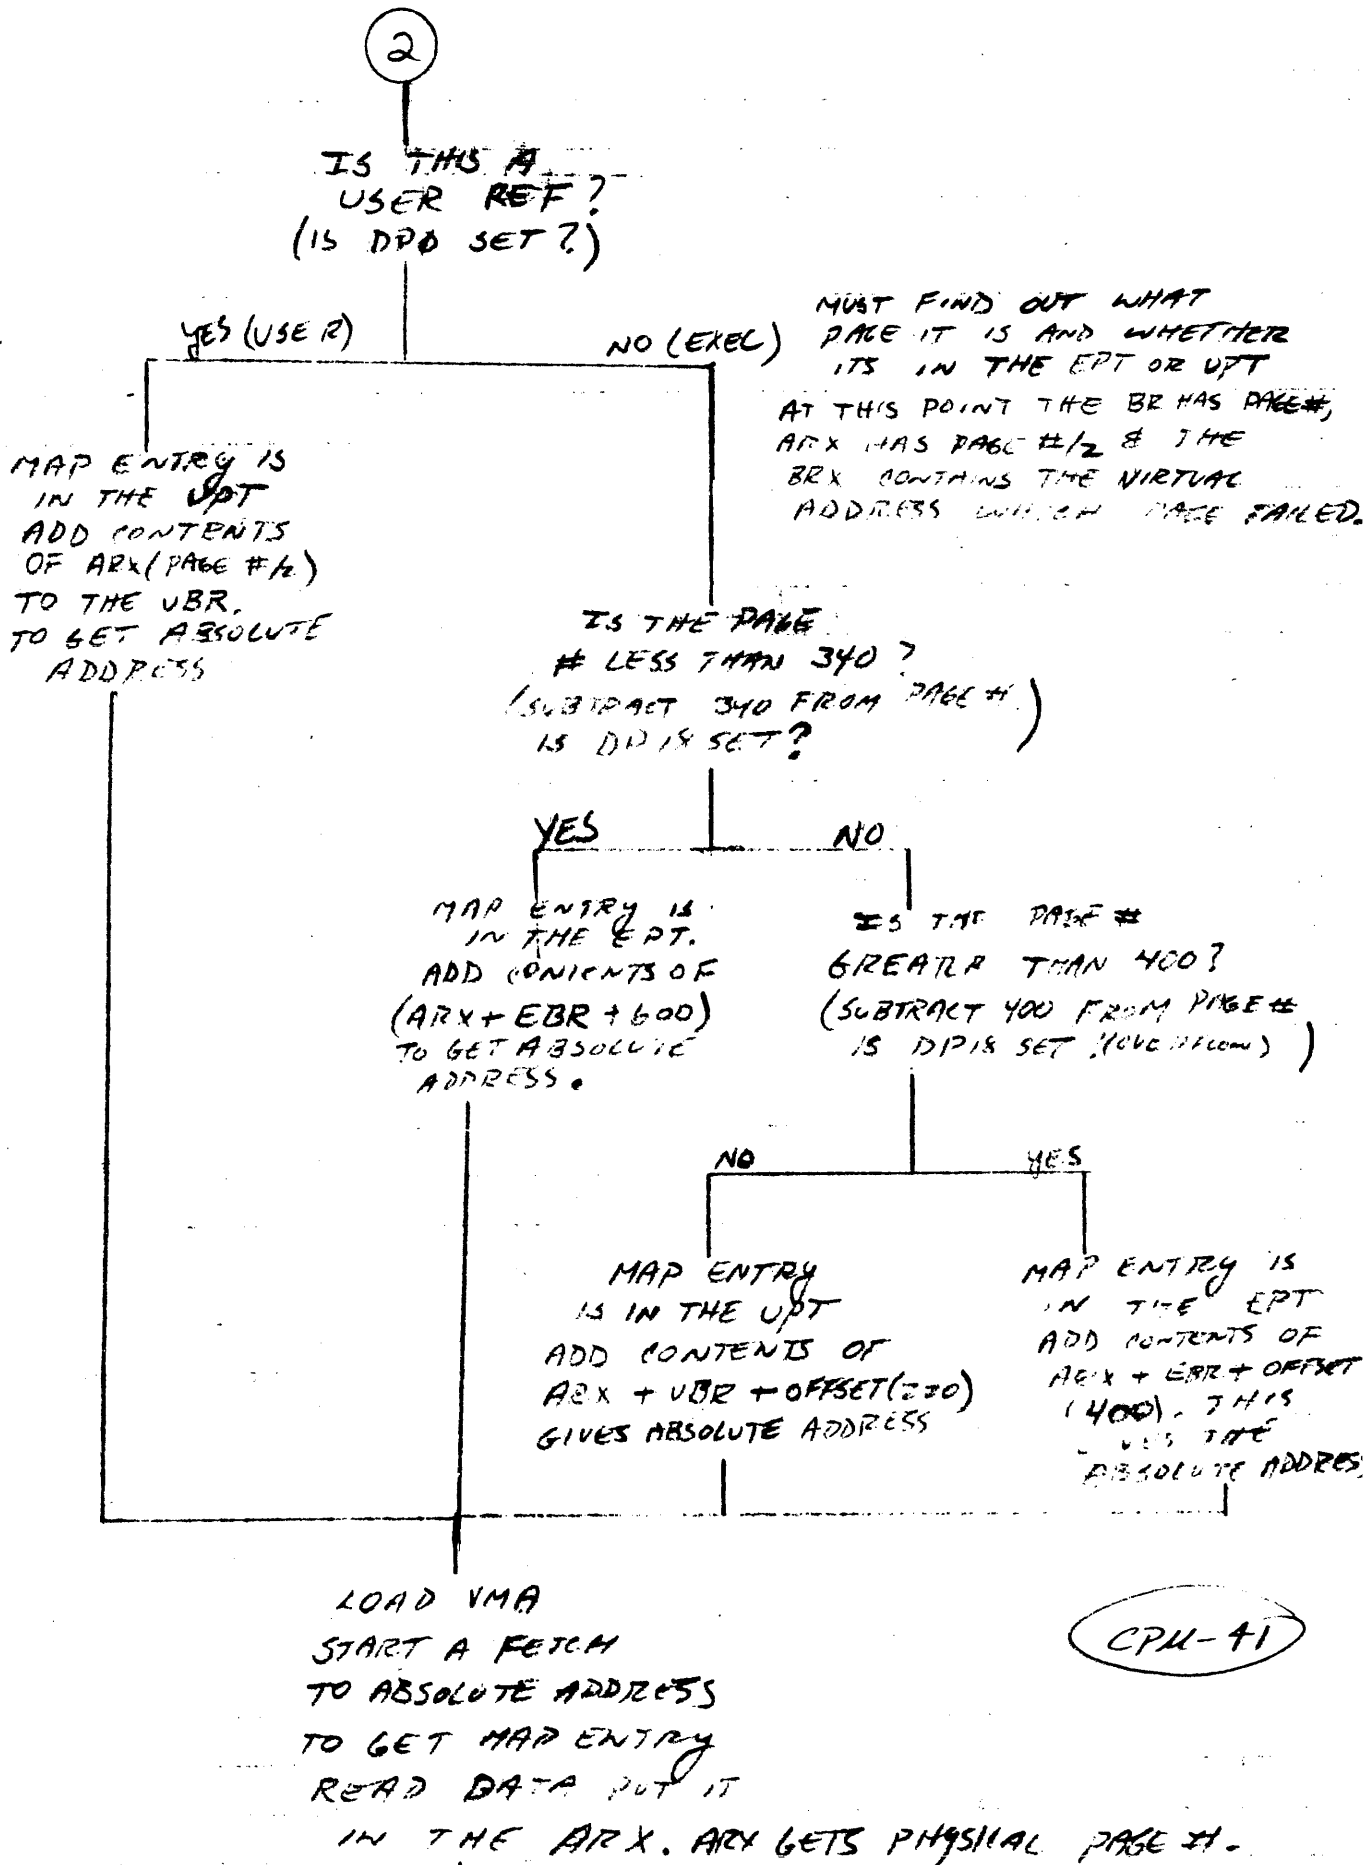 2
IS THIS A
USER REF?
(IS DP0 SET?)
YES (USER)
NO (EXEC)
MUST FIND OUT WHAT
PAGE IT IS AND WHETHER
ITS IN THE EPT OR UPT
AT THIS POINT THE BR HAS PAGE #,
ARX HAS PAGE #/2 & THE
BRX CONTAINS THE VIRTUAL
ADDRESS WHICH PAGE FAILED.
MAP ENTRY IS
IN THE UPT
ADD CONTENTS
OF ARX (PAGE #/2)
TO THE UBR.
TO GET ABSOLUTE
ADDRESS
IS THE PAGE
# LESS THAN 340?
(SUBTRACT 340 FROM PAGE #
IS DP18 SET?)
YES
NO
MAP ENTRY IS
IN THE EPT.
ADD CONTENTS OF
(ARX + EBR + 600)
TO GET ABSOLUTE
ADDRESS.
IS THE PAGE #
GREATER THAN 400?
(SUBTRACT 400 FROM PAGE #
IS DP18 SET (OVERFLOW))
NO
YES
MAP ENTRY
IS IN THE UPT
ADD CONTENTS OF
ARX + UBR + OFFSET
GIVES ABSOLUTE ADDRESS
MAP ENTRY IS
IN THE EPT
ADD CONTENTS OF
ARX + EBR + OFFSET
(400). THIS
THE
ABSOLUTE ADDRES
LOAD VMA
START A FETCH
TO ABSOLUTE ADDRESS
TO GET MAP ENTRY
READ DATA PUT IT
IN THE ARX. ARX GETS PHYSICAL PAGE #.
CPU-41